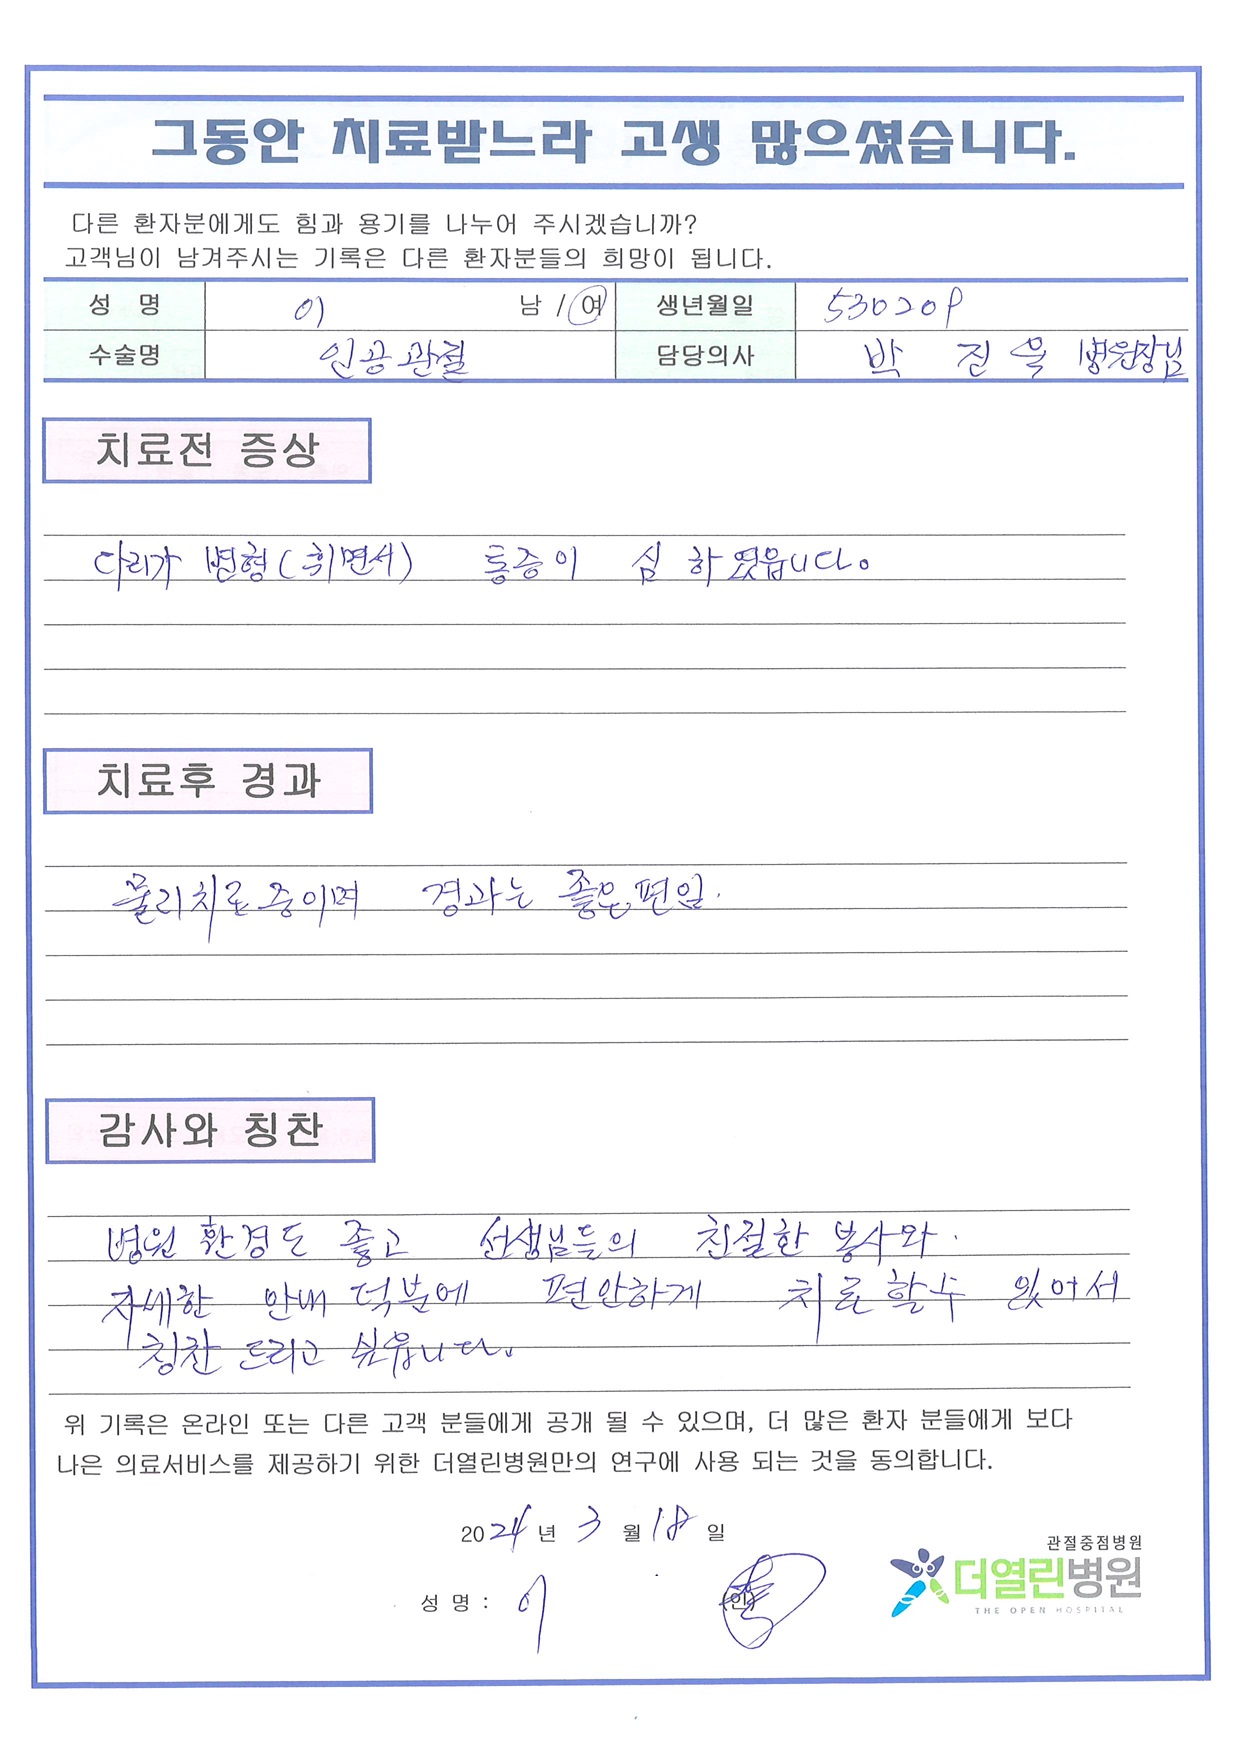 그동안 치료받느라 고생 많으셨습니다.
다른 환자분에게도 힘과 용기를 나누어 주시겠습니까?
고객님이 남겨주시는 기록은 다른 환자분들의 희망이 됩니다.
성 명 이 남 / 여 생년월일 530209
수술명 인공관절 담당의사 박 진 욱 병원장님
치료전 증상
다리가 변형(휘면서) 통증이 심 하였읍니다.
치료후 경과
물리치료중이며 경과는 좋은편임.
감사와 칭찬
병원 환경도 좋고 선생님들의 친절한 봉사와.
자세한 안내 덕분에 편안하게 치료할수 있어서
칭찬 드리고 싶읍니다.
위 기록은 온라인 또는 다른 고객 분들에게 공개 될 수 있으며, 더 많은 환자 분들에게 보다
나은 의료서비스를 제공하기 위한 더열린병원만의 연구에 사용 되는 것을 동의합니다.
2024 년 3 월 18 일
성 명 : 이 (인)
관절중점병원
더열린병원
THE OPEN HOSPITAL